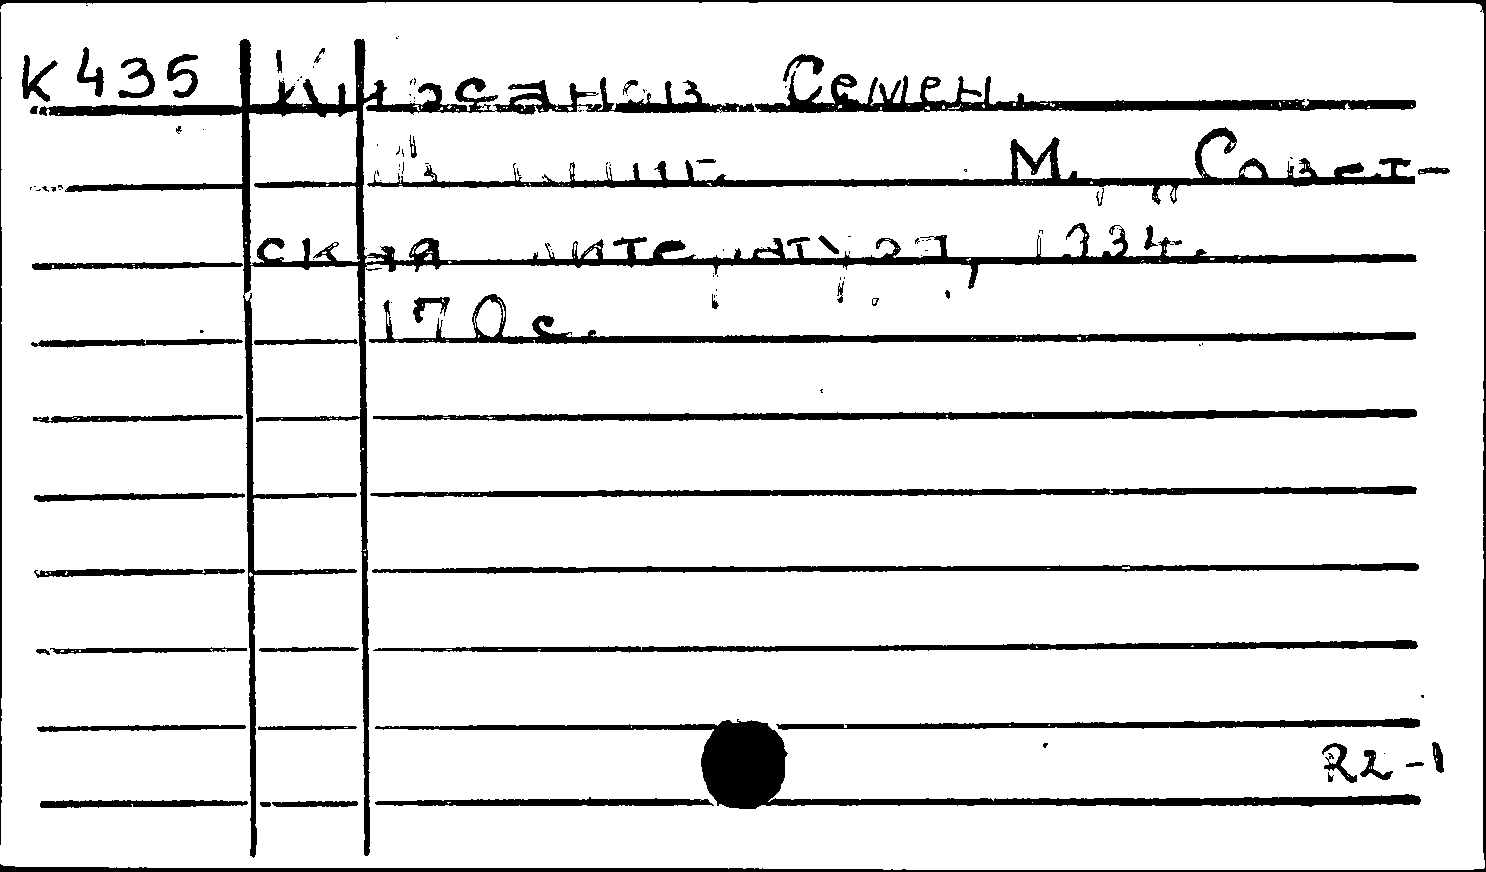 К435 Кирсанов Семен.
Из книг. М., „Совет-
ская литература", 1934.
170 с.
R2-1